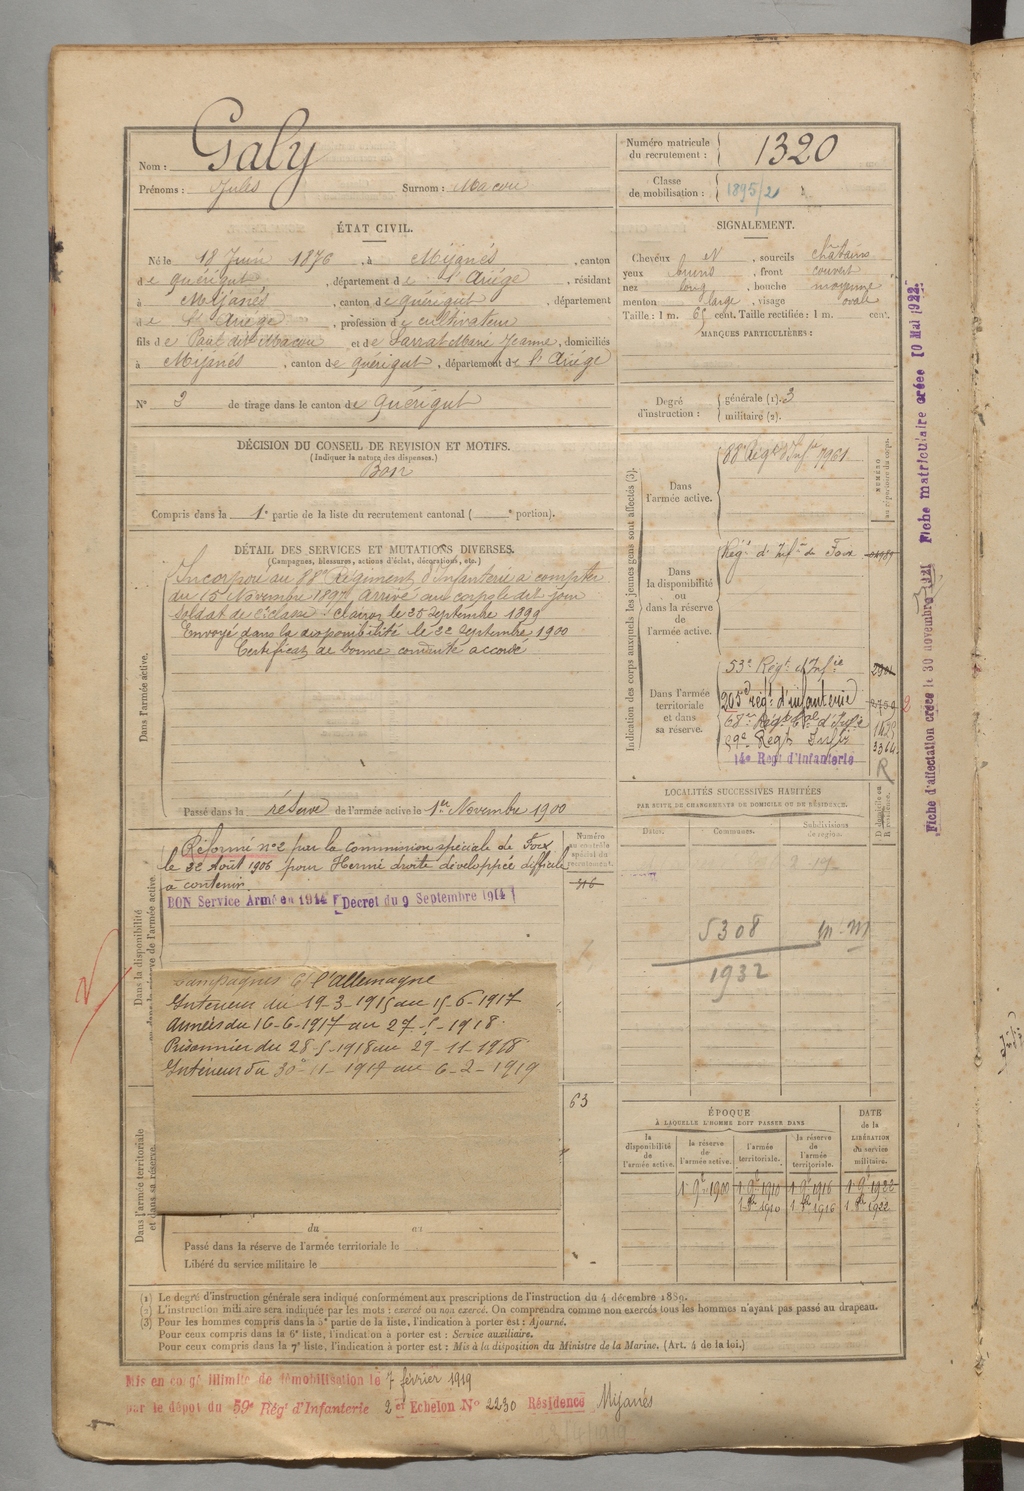 Nom : Galy
Prénoms : Jules Surnom : Macou
Numéro matricule du recrutement : 1320
Classe de mobilisation : 1895/21
ÉTAT CIVIL.
Né le 18 Juin 1876, à Mijanés, canton
de Quérigut, département de l'Ariége, résidant
à Mijanés, canton de Quérigut, département
de l'Ariége, profession de cultivateur
fils de Paul dit Macou et de Sarrat Marie Jeanne, domiciliés
à Mijanés, canton de Quérigut, département de l'Ariége
N° 3 de tirage dans le canton de Quérigut
SIGNALEMENT.
Cheveux et, sourcils châtains
yeux bruns, front couvert
nez long, bouche moyenne
menton large, visage ovale
Taille : 1 m. 65 cent. Taille rectifiée : 1 m. cent.
MARQUES PARTICULIÈRES :
Degré d'instruction : générale (1). 3
militaire (2).
DÉCISION DU CONSEIL DE REVISION ET MOTIFS.
(Indiquer la nature des dispenses.)
Bon
Compris dans la 1e partie de la liste du recrutement cantonal ( e portion).
DÉTAIL DES SERVICES ET MUTATIONS DIVERSES.
(Campagnes, blessures, actions d'éclat, décorations, etc.)
Dans l'armée active.
Incorporé au 88e Régiment d'Infanterie à compter
du 15 Novembre 1897 arrivé au corps le dit jour
soldat de 2e classe. Clairon le 25 Septembre 1899
Envoyé dans la disponibilité le 22 Septembre 1900
Certificat de bonne conduite accordé
Passé dans la réserve de l'armée active le 1er Novembre 1900
Dans la disponibilité ou dans la réserve de l'armée active.
Réformé n°2 par la commission spéciale de Foix
le 22 Août 1906 pour Hernie droite développée difficile
à contenir.
BON Service Armé en 1914 [Decret du 9 Septembre 1914]
Numéro au contrôle spécial du recrutement.
316
63
Campagnes Ct l'Allemagne
Intérieur du 19-3-1915 au 15-6-1917
Armées du 16-6-1917 au 27-5-1918
Prisonnier du 28-5-1918 au 29-11-1918
Intérieur du 30-11-1919 au 6-2-1919
Dans l'armée territoriale et dans sa réserve.
du au
Passé dans la réserve de l'armée territoriale le
Libéré du service militaire le
Indication des corps auxquels les jeunes gens sont affectés (3).
NUMÉRO au répertoire du corps.
Dans l'armée active.
88e Régt d'Infie 7961
Dans la disponibilité ou dans la réserve de l'armée active.
Régt d'Infie de Foix
Dans l'armée territoriale et dans sa réserve.
53e Régt d'Infie
205e régt d'infanterie 2759
68e Régt tal d'Infie 1425
59e Régt Infie 3364
14e Regt d'Infanterie R
LOCALITÉS SUCCESSIVES HABITÉES
PAR SUITE DE CHANGEMENTS DE DOMICILE OU DE RÉSIDENCE.
Dates. Communes. Subdivisions de région. D domicile ou R résidence.
5308
1932
ÉPOQUE
À LAQUELLE L'HOMME DOIT PASSER DANS
la disponibilité de l'armée active. la réserve de l'armée active. l'armée territoriale. la réserve de l'armée territoriale.
DATE de la LIBÉRATION du service militaire.
1 9e 1900 1 9e 1910 1 9e 1916 1 9e 1922
1 8e 1910 1 8e 1916 1 8e 1922
(1) Le degré d'instruction générale sera indiqué conformément aux prescriptions de l'instruction du 4 décembre 1889.
(2) L'instruction militaire sera indiquée par les mots : exercé ou non exercé. On comprendra comme non exercés tous les hommes n'ayant pas passé au drapeau.
(3) Pour les hommes compris dans la 5e partie de la liste, l'indication à porter est : Ajourné.
Pour ceux compris dans la 6e liste, l'indication à porter est : Service auxiliaire.
Pour ceux compris dans la 7e liste, l'indication à porter est : Mis à la disposition du Ministre de la Marine. (Art. 4 de la loi.)
Mis en congé illimité de démobilisation le 7 février 1919
par le dépôt du 59e Régt d'Infanterie 2e Echelon N° 2230 Résidence Mijanés
Fiche d'affectation créée le 30 novembre 1921 Fiche matriculaire créée 10 Mai 1922.